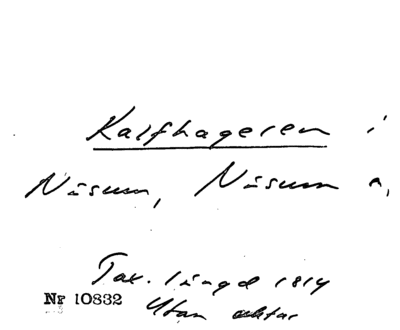 Kalfhageren i
Näsum, Näsum s,
Tax. längd 1814
Nr 10832
Utan aktas